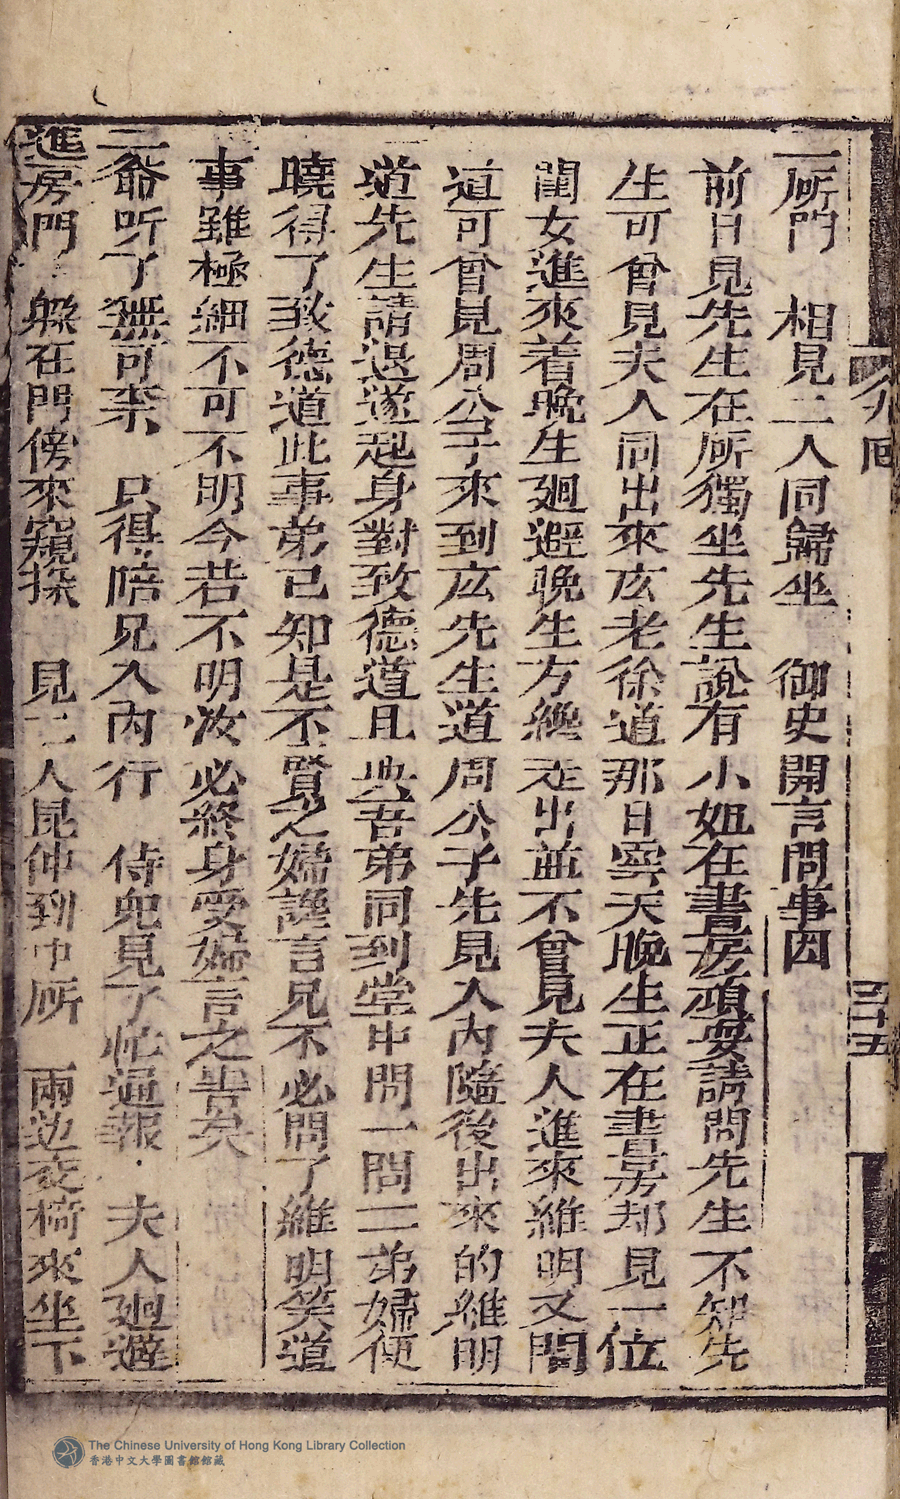 二所門　相見二人同歸坐　御史開言問事因
前日見先生在所獨坐先生說有小姐在書房頑耍請問先生不知先
生可曾見夫人同出來庅老徐道那日雲天晚生正在書房却見一位
閨女進來着晚生廻避晚生方纔走出並不曾見夫人進來維明又問
道可曾見周公子來到庅先生道周公子先見入內隨後出來的維明
道先生請退遂起身對致德道且與吾弟同到堂中問一問二弟婦便
曉得了致德道此事弟已知是不賢之婦讒言兄不必問了維明笑道
事雖極細不可不明今若不明汝必終身受婦言之害矣
二爺听了無可柰　只得陪兄入內行　侍兒見了忙通報　夫人廻避
進房門　躲在門傍來窺探　見二人昆仲到中所　兩边交椅來坐下
三十五
The Chinese University of Hong Kong Library Collection
香港中文大學圖書館館藏